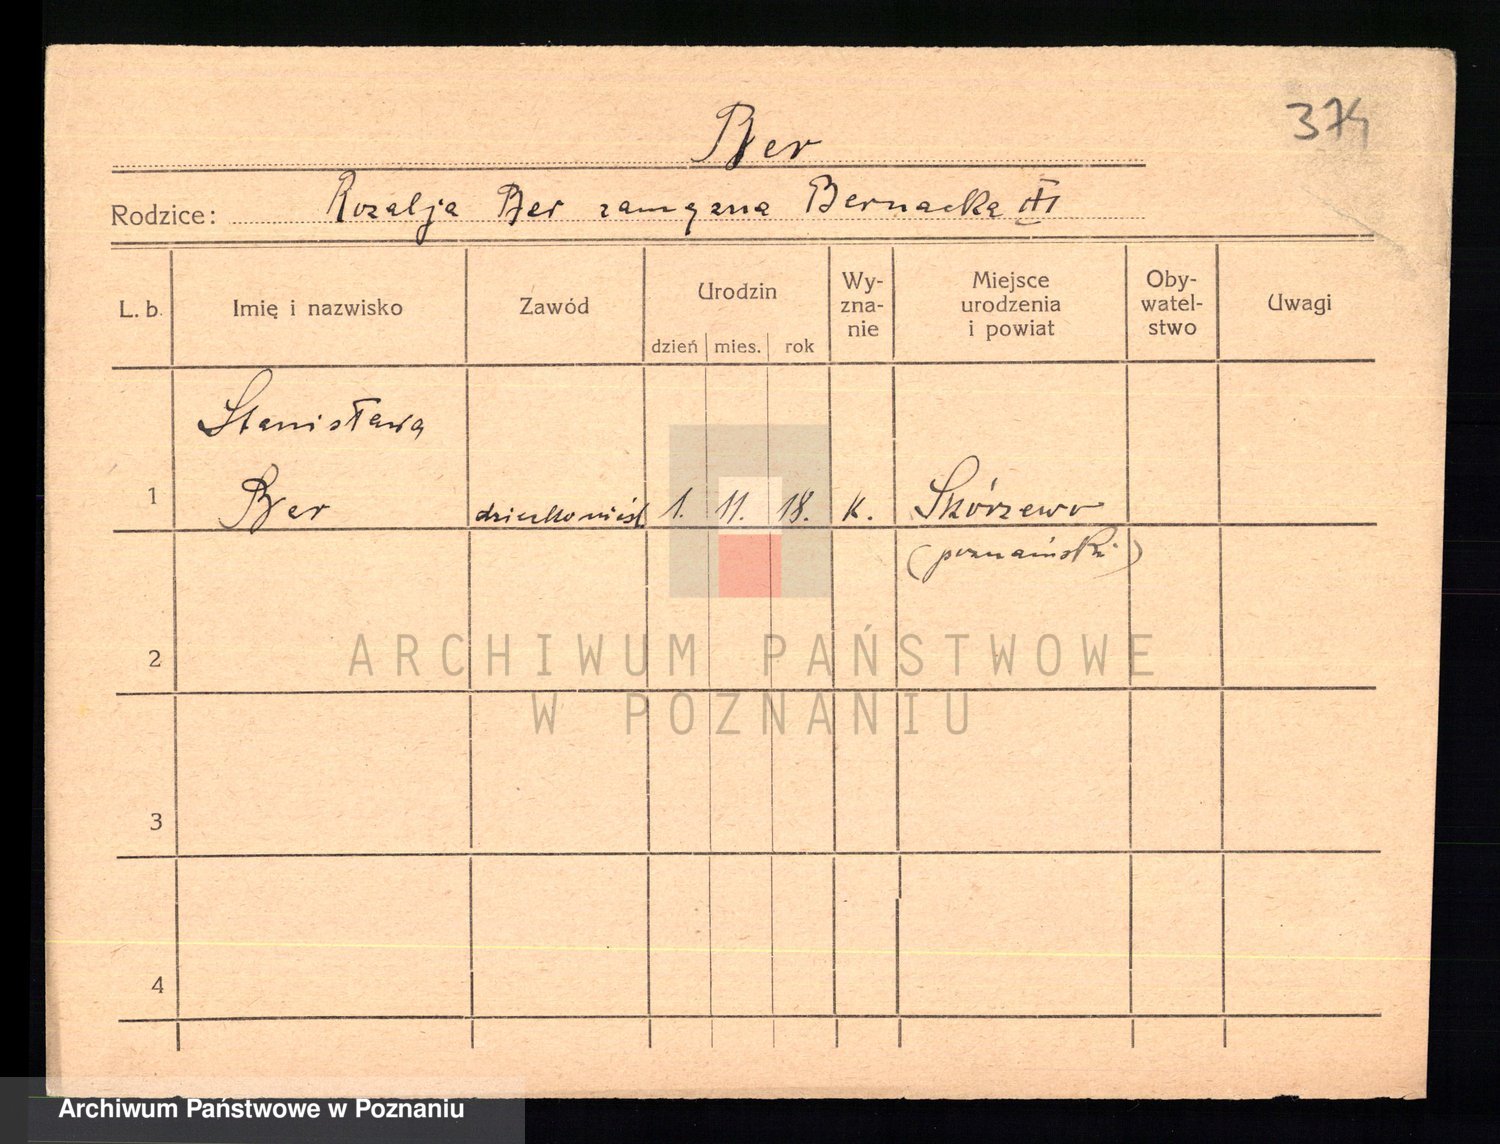 374
Ber
Rodzice: Rozalja Ber zamężna Bernacka III
L. b.
Imię i nazwisko
Zawód
Urodzin
dzień mies. rok
Wy-
zna-
nie
Miejsce
urodzenia
i powiat
Oby-
watel-
stwo
Uwagi
Stanisława
1 Ber 1. 11. 18. K. Skórzewo
(poznański)
2
3
4
ARCHIWUM PAŃSTWOWE
W POZNANIU
Archiwum Państwowe w Poznaniu